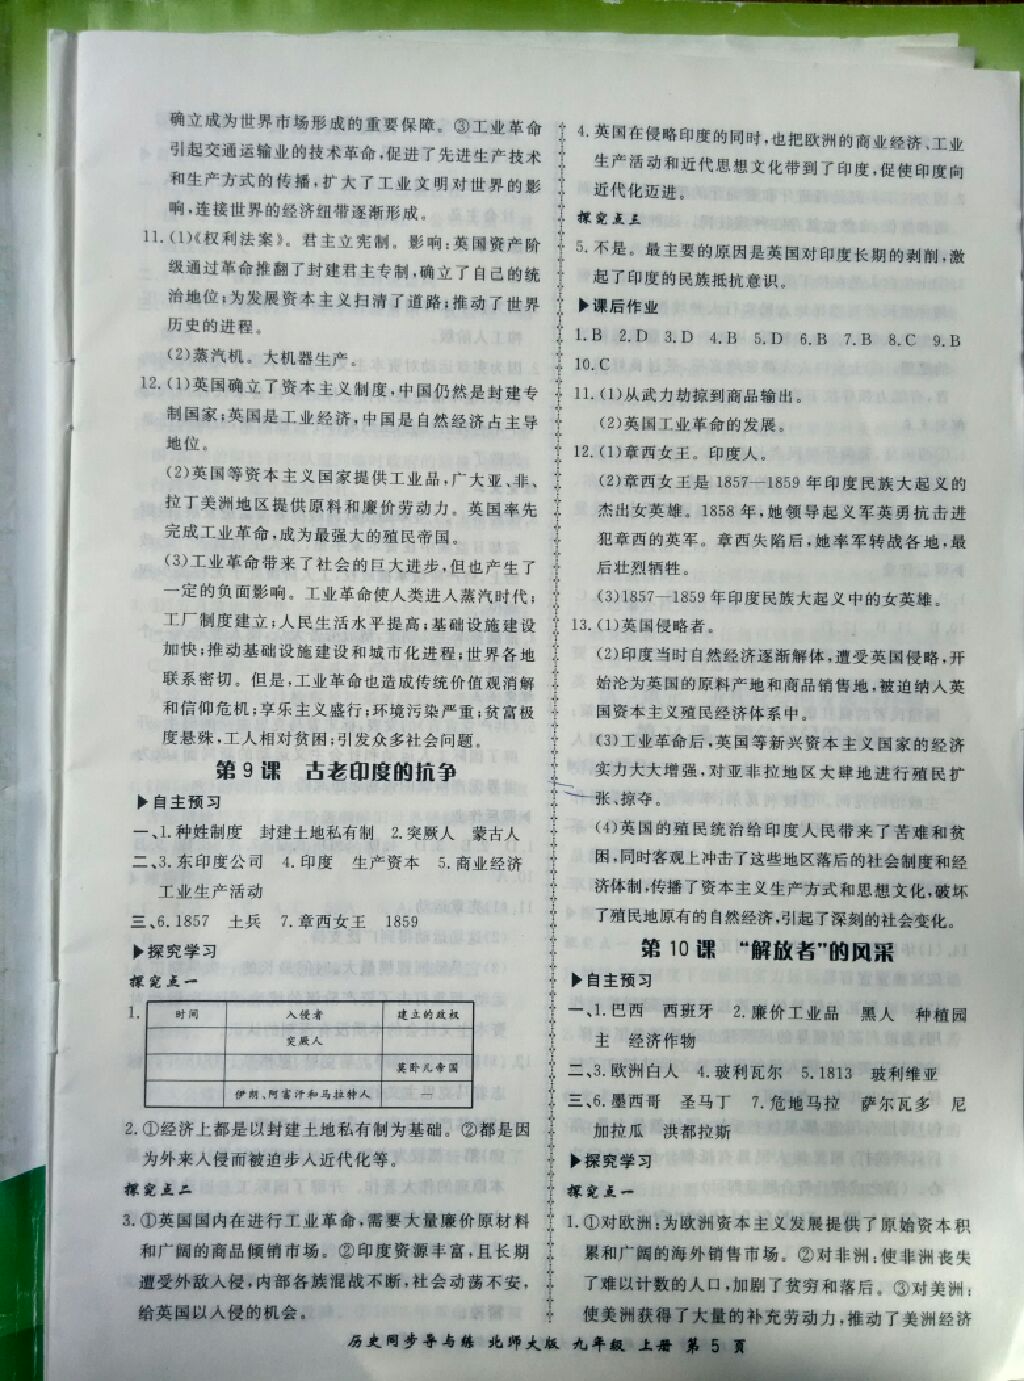 确立成为世界市场形成的重要保障。③工业革命
引起交通运输业的技术革命,促进了先进生产技术
和生产方式的传播,扩大了工业文明对世界的影
响,连接世界的经济纽带逐渐形成。
11.(1)《权利法案》。君主立宪制。影响:英国资产阶
级通过革命推翻了封建君主专制,确立了自己的统
治地位;为发展资本主义扫清了道路;推动了世界
历史的进程。
(2)蒸汽机。大机器生产。
12.(1)英国确立了资本主义制度,中国仍然是封建专
制国家;英国是工业经济,中国是自然经济占主导
地位。
(2)英国等资本主义国家提供工业品,广大亚、非、
拉丁美洲地区提供原料和廉价劳动力。英国率先
完成工业革命,成为最强大的殖民帝国。
(3)工业革命带来了社会的巨大进步,但也产生了
一定的负面影响。工业革命使人类进入蒸汽时代;
工厂制度建立;人民生活水平提高;基础设施建设
加快;推动基础设施建设和城市化进程;世界各地
联系密切。但是,工业革命也造成传统价值观消解
和信仰危机;享乐主义盛行;环境污染严重;贫富极
度悬殊,工人相对贫困;引发众多社会问题。
第9课 古老印度的抗争
▶自主预习
一、1.种姓制度 封建土地私有制 2.突厥人 蒙古人
二、3.东印度公司 4.印度 生产资本 5.商业经济
工业生产活动
三、6.1857 土兵 7.章西女王 1859
▶探究学习
探究点一
1.
时间 入侵者 建立的政权
突厥人
莫卧儿帝国
伊朗、阿富汗和马拉特人 —
2.①经济上都是以封建土地私有制为基础。②都是因
为外来入侵而被迫步入近代化等。
探究点二
3.①英国国内在进行工业革命,需要大量廉价原材料
和广阔的商品倾销市场。②印度资源丰富,且长期
遭受外敌入侵,内部各族混战不断,社会动荡不安,
给英国以入侵的机会。
4.英国在侵略印度的同时,也把欧洲的商业经济、工业
生产活动和近代思想文化带到了印度,促使印度向
近代化迈进。
探究点三
5.不是。最主要的原因是英国对印度长期的剥削,激
起了印度的民族抵抗意识。
▶课后作业
1.B 2.D 3.D 4.B 5.D 6.B 7.B 8.C 9.B
10.C
11.(1)从武力劫掠到商品输出。
(2)英国工业革命的发展。
12.(1)章西女王。印度人。
(2)章西女王是1857—1859年印度民族大起义的
杰出女英雄。1858年,她领导起义军英勇抗击进
犯章西的英军。章西失陷后,她率军转战各地,最
后壮烈牺牲。
(3)1857—1859年印度民族大起义中的女英雄。
13.(1)英国侵略者。
(2)印度当时自然经济逐渐解体,遭受英国侵略,开
始沦为英国的原料产地和商品销售地,被迫纳入英
国资本主义殖民经济体系中。
(3)工业革命后,英国等新兴资本主义国家的经济
实力大大增强,对亚非拉地区大肆地进行殖民扩
张、掠夺。
(4)英国的殖民统治给印度人民带来了苦难和贫
困,同时客观上冲击了这些地区落后的社会制度和经
济体制,传播了资本主义生产方式和思想文化,破坏
了殖民地原有的自然经济,引起了深刻的社会变化。
第10课 “解放者”的风采
▶自主预习
一、1.巴西 西班牙 2.廉价工业品 黑人 种植园
主 经济作物
二、3.欧洲白人 4.玻利瓦尔 5.1813 玻利维亚
三、6.墨西哥 圣马丁 7.危地马拉 萨尔瓦多 尼
加拉瓜 洪都拉斯
▶探究学习
探究点一
1.①对欧洲:为欧洲资本主义发展提供了原始资本积
累和广阔的海外销售市场。②对非洲:使非洲丧失
了难以计数的人口,加剧了贫穷和落后。③对美洲:
使美洲获得了大量的补充劳动力,推动了美洲经济
历史同步导与练 北师大版 九年级 上册 第5页